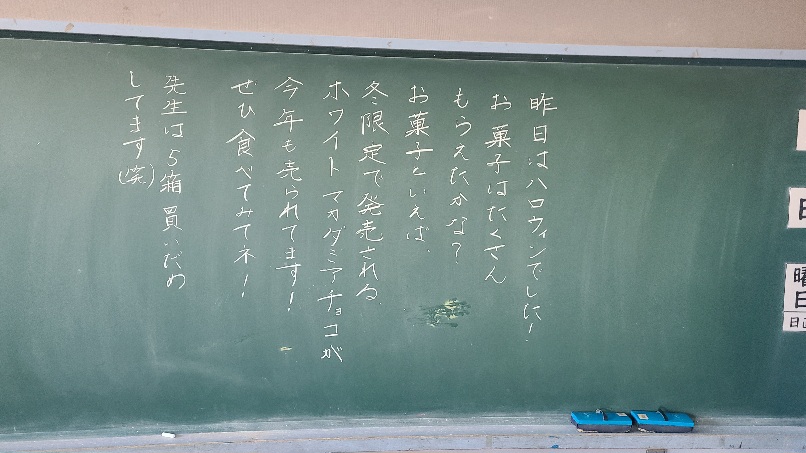 昨日はハロウィンでした!
お菓子はたくさん
もらえたかな?
お菓子といえば、
冬限定で発売される
ホワイトマカダミアチョコが
今年も売られてます!
ぜひ食べてみてネ!
先生は5箱買いだめ
してます(笑)
日
曜日